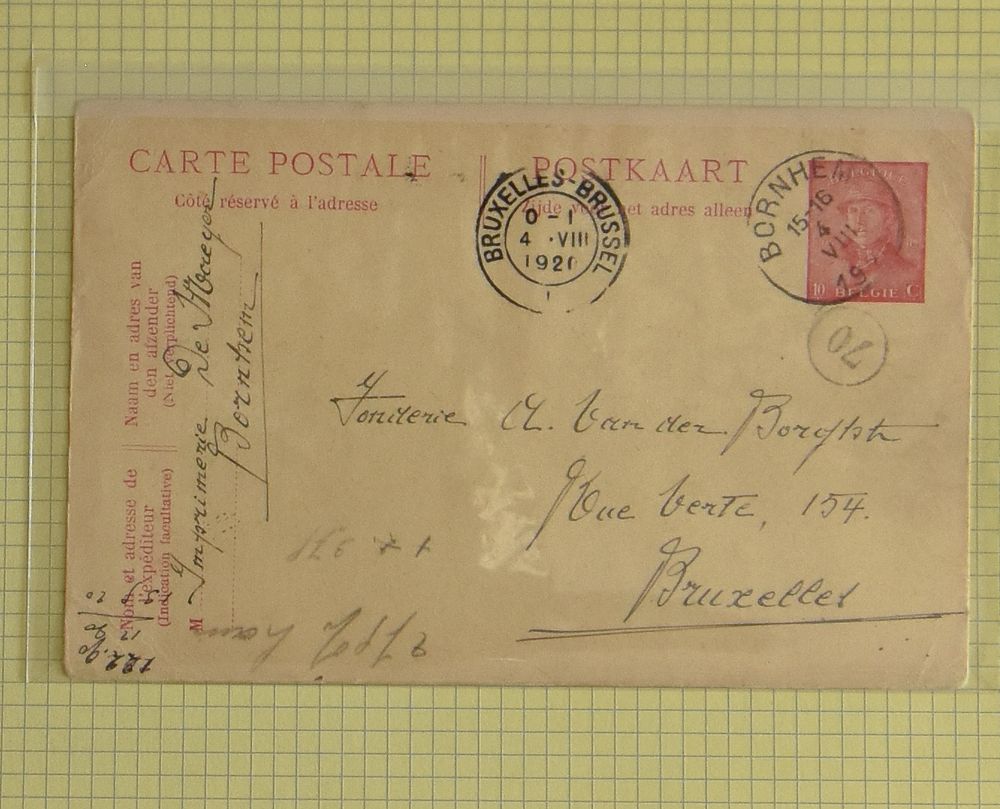 CARTE POSTALE
POSTKAART
Côté réservé à l'adresse
Zijde et adres alleen
BRUXELLES-BRUSSEL
0-1
4 ·VIII
1920
BORNHEM
15-16
4
VIII
19
BELGIQUE
10 BELGIË C
70
Naam en adres van
den afzender
(Niet verplichtend)
Nom et adresse de
l'expéditeur
(Indication facultative)
M
Imprimerie De
Bornhem
Fonderie A. Van der Borght
Rue Verte, 154.
Bruxelles
122.90